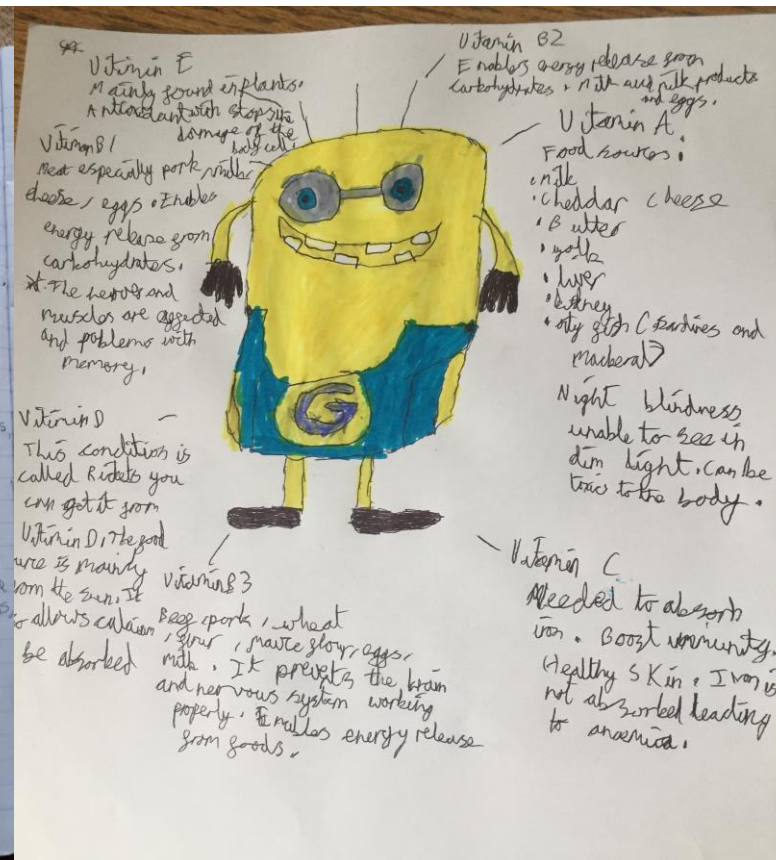 Vitimin E
Mainly found in plants.
Antioxidant with stops
damage of the
body cell
Vitamin B2
Enables energy release from
carbohydrates. Milk and milk products
and eggs.
Vitamin B1
Meat especially pork, milk
cheese, eggs. Enables
energy release from
carbohydrates.
The nerves and
muscles are affected
and poblems with
memory.
Vitamin A
Food sources:
• milk
• Cheddar Cheese
• Butter
• yolk
• liver
• kidney
• oily fish (Sardines and
mackeral)
Night blindness
unable to see in
dim light. Can be
toxic to the body.
G
Vitimin D
This condition is
called Rickets you
can get it from
Vitimin D, The food
urce is mainly
rom the sun. It
allows calcium
be absorbed
Vitamin B3
Beef, pork, wheat
flour, maize flour, eggs,
milk. It prevets the brain
and nervous system working
properly. Enables energy release
from foods.
Vitamin C
Needed to absorb
iron. Boost immunity.
Healthy Skin. Iron is
not absorbed leading
to anaemia.